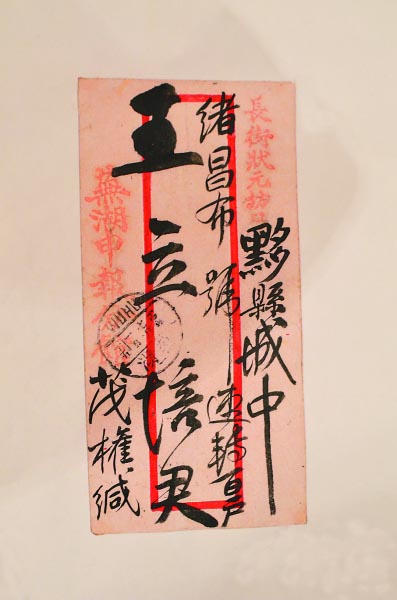 長街狀元坊
黟縣城中
緒昌布號速轉百户
王立培君
茂權緘
蕪湖申報
WUHU